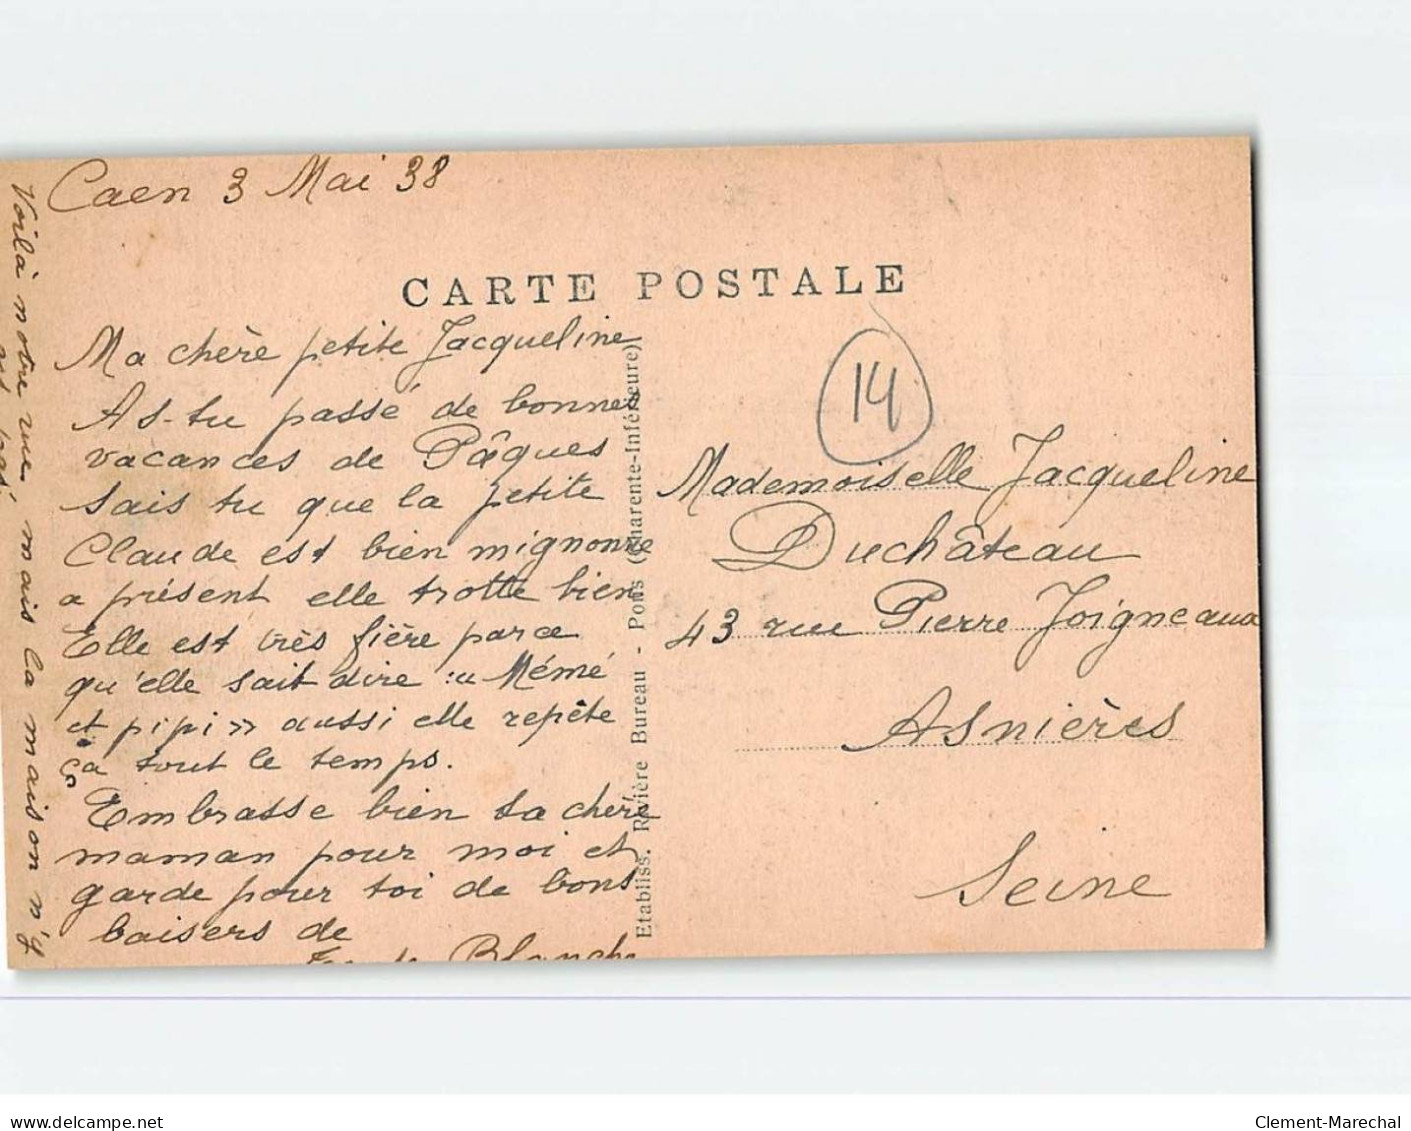 Caen 3 Mai 38
CARTE POSTALE
Ma chère petite Jacqueline
As-tu passé de bonnes
vacances de Pâques
Sais tu que la petite
Claude est bien mignonne
a présent elle trotte bien
Elle est très fière parce
qu'elle sait dire :« Mémé
et pipi» aussi elle repète
ça tout le temps.
Embrasse bien ta chère
maman pour moi et
garde pour toi de bons
baisers de
Blanche
Voilà notre rue, mais la maison n'y
est pas
Etabliss. Rivière Bureau - Pons (Charente-Inférieure)
14
Mademoiselle Jacqueline
Duchâteau
43 rue Pierre Joigneaux
Asnières
Seine
www.delcampe.net
Clement-Marechal